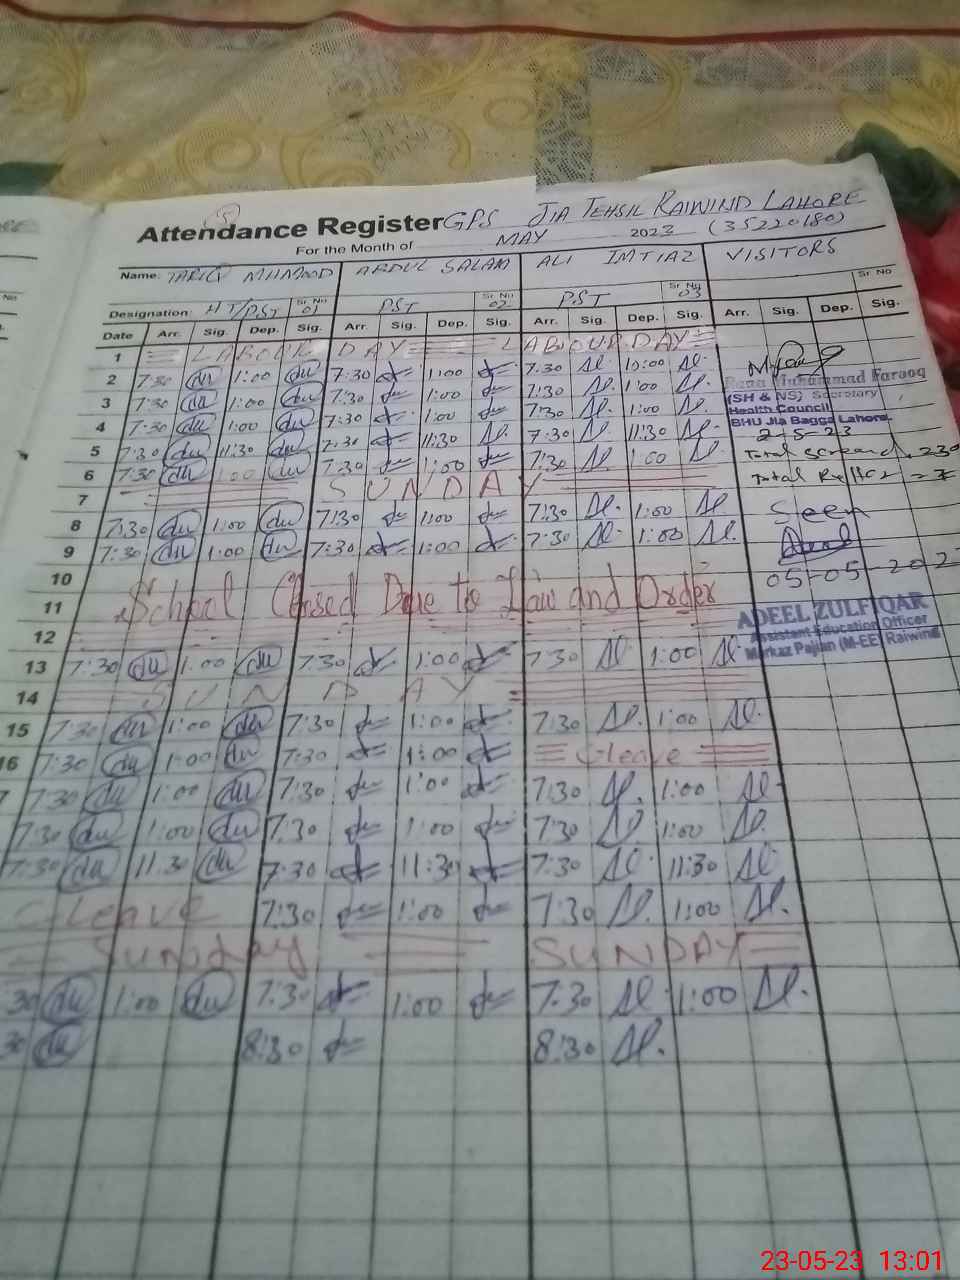 Attendance Register GPS JIA TEHSIL RAIWIND LAHORE
For the Month of MAY 2023 (35220180)
Name: TARIQ MHMOOD ABDUL SALAM ALI IMTIAZ VISITORS
Sr No Sr No Sr No Sr No
Designation HT/PST 01 PST 02 PST 03
Date Arr. Sig. Dep. Sig. Arr. Sig. Dep. Sig. Arr. Sig. Dep. Sig. Arr. Sig. Dep. Sig.
1 LABOUR DAY LABOUR DAY
2 7:30 1:00 7:30 1:00 7:30 10:00
3 7:30 1:00 7:30 1:00 7:30 1:00
4 7:30 1:00 7:30 1:00 7:30 1:00
5 7:30 11:30 7:30 11:30 7:30 11:30
6 7:30 1:00 7:30 1:00 7:30 1:00
7 SUNDAY
8 7:30 1:00 7:30 1:00 7:30 1:00
9 7:30 1:00 7:30 1:00 7:30 1:00
10
11 School Closed Due to Law and Order
12
13 7:30 1:00 7:30 1:00 7:30 1:00
14 SUNDAY
15 7:30 1:00 7:30 1:00 7:30 1:00
16 7:30 1:00 7:30 1:00 C-leave
7 7:30 1:00 7:30 1:00 7:30 1:00
7:30 1:00 7:30 1:00 7:30 1:00
7:30 11:30 7:30 11:30 7:30 11:30
C-Leave 7:30 1:00 7:30 1:00
Sunday SUNDAY
30 1:00 7:30 1:00 7:30 1:00
30 8:30 8:30
Rana Muhammad Farooq
(SH & NS) Secretary
Health Council
BHU Jia Bagga Lahore
2-5-23
Total Screened 230
Total
Seen
05-05-202
ADEEL ZULFIQAR
Assistant Education Officer
Markaz Pajian (M-EE) Raiwind
23-05-23 13:01